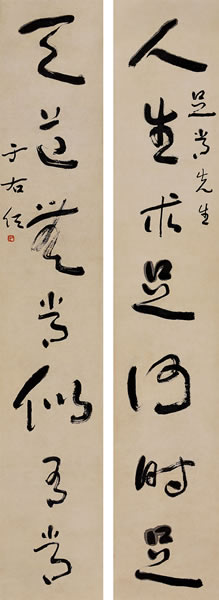 人生求足何時足
足常先生
天道無常似有常
于右任